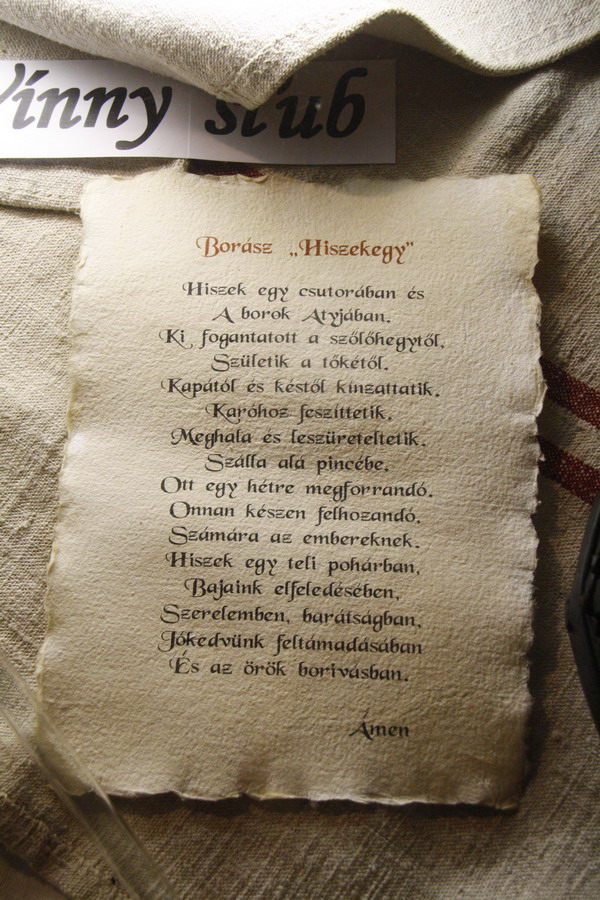 Vínny sľub
Borász „Hiszekegy”
Hiszek egy csutorában és
A borok Atyjában.
Ki fogantatott a szőlőhegytől,
Születik a tőkétől.
Kapától és késtől kínzattatik.
Karóhoz feszíttetik.
Meghala és leszüreteltetik.
Szálla alá pincébe.
Ott egy hétre megforrandó.
Onnan készen felhozandó.
Számára az embereknek.
Hiszek egy teli pohárban,
Bajaink elfeledésében,
Szerelemben, barátságban,
Jókedvünk feltámadásában
És az örök borivásban.
Ámen